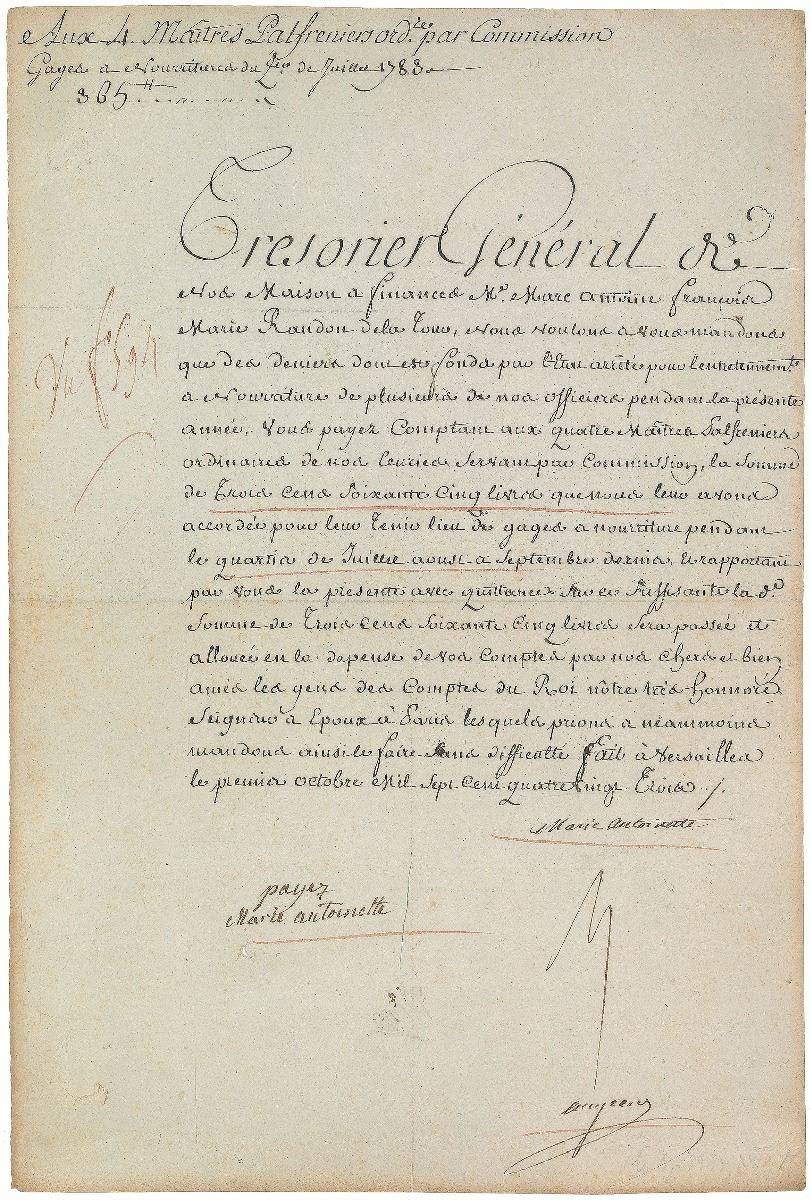 Aux 4 Maitres Palfreniers ord.res par Commission
Gages & Nourritures du Q.er de Juillet 1783
365tt
Tresorier Général de
Nos Maison & finances Mr. Marc antoine françois
Marie Randon de la Tour, Nous voulons & vous mandons
que des deniers dont est fonds par l'Etat arrêté pour l'entretennemt
& Nourrature de plusieurs de nos officiers pendant la présente
année, Vous payez Comptant aux quatre Maitres Palfreniers
ordinaires de nos Ecuries Servant par Commission, la Somme
de Trois Cens Soixante Cinq livres que nous leur avons
accordée pour leur Tenir lieu de gages & nourriture pendant
le quartier de Juillet aoust & Septembre dernier Et rapportant
par vous la présente avec quittance Sur ce Suffisante la d.e
Somme de Trois cens Soixante Cinq livres sera passée et
allouée en la depense de vos Comptes par nos chers et bien
amés les gens des Comptes du Roi nôtre très honnoré
Seigneur & Epoux à Paris lesquels prions & néammoins
mandons ainsi le faire Sans difficulté fait à Versailles
le premier octobre Mil Sept Cent quatre Vingt Trois /.
Marie Antoinette
payez
Marie antoinette
augeard
Vu fo 594